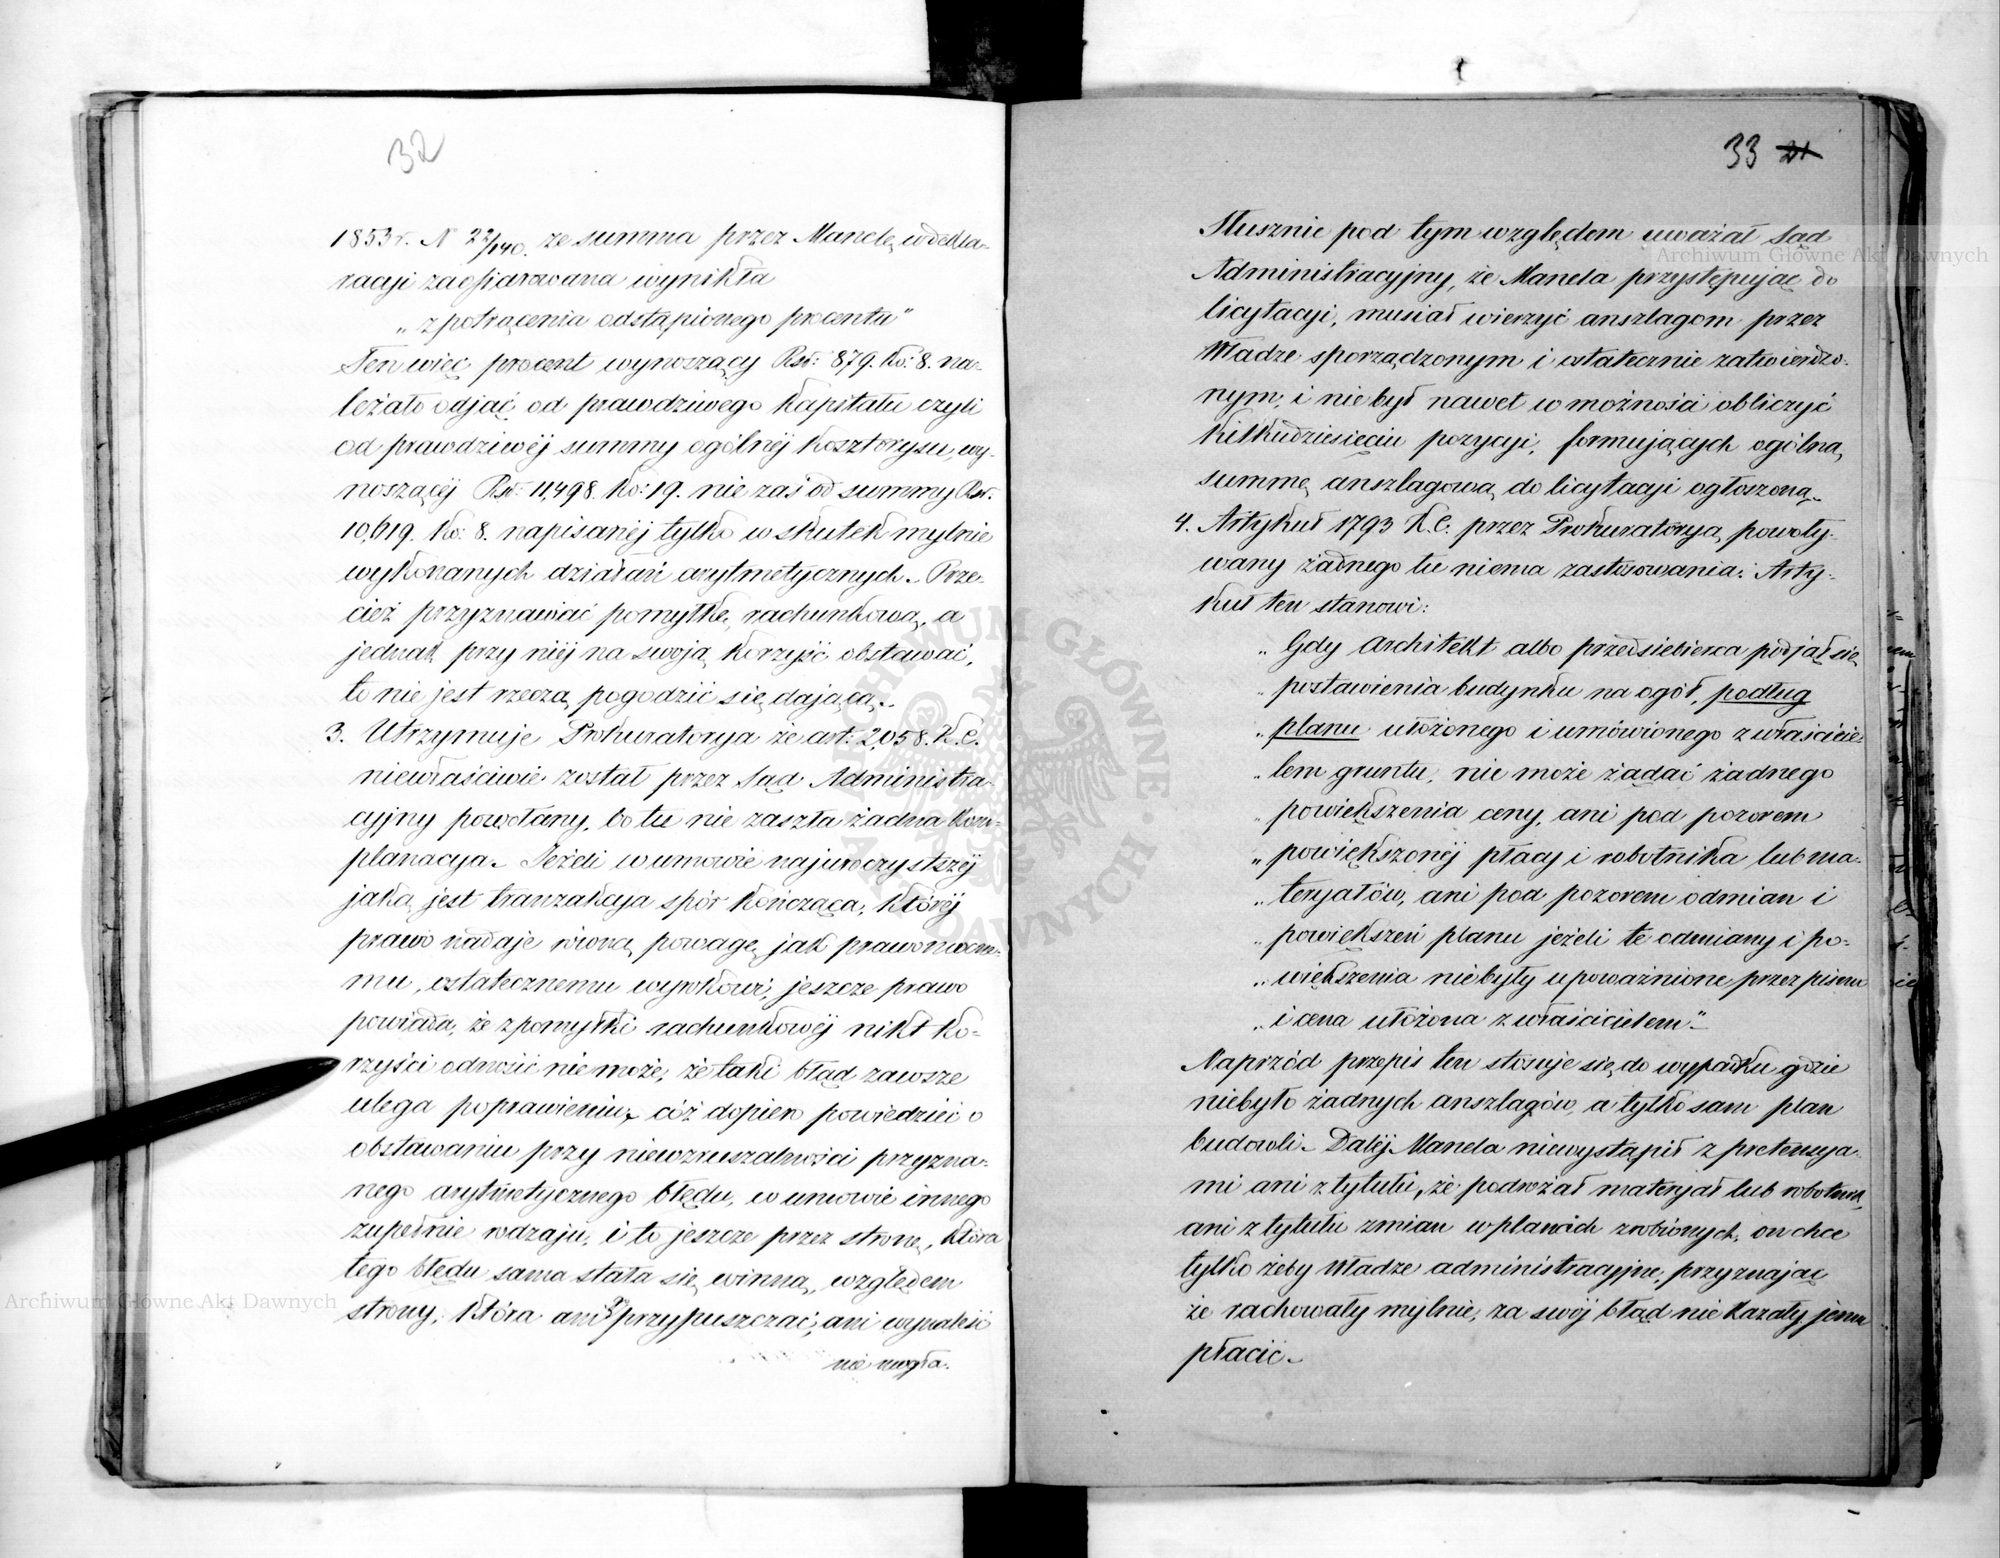 32
1853 r. N 22/140. że summa przez Manelę w dekla-
racyi zaofiarowana wynikła
„z potrącenia odstąpionego procentu"
Ten więc procent wynoszący Rsr: 879. Ko: 8. na-
leżało odjąć od prawdziwego Kapitału czyli
od prawdziwéj summy ogólnéj Kosztorysu, wy-
noszącéj Rsr: 11,498. Ko: 19. nie zaś od summy Rsr.
10,619. Ko: 8. napisanéj tylko w skutek mylnie
wykonanych działań arytmetycznych. Prze-
cież przyznawać pomyłkę rachunkową, a
jednak przy niéj na swoją korzyść obstawać,
to nie jest rzeczą pogodzić się dającą.
3. Utrzymuje Prokuratorya że art: 2,058. K.C.
niewłaściwie został przez Sąd Administra-
cyjny powołany, bo tu nie zaszła żadna kom-
planacya. Jeżeli w umowie najuroczystszéj
jaką jest tranzakcya spór kończąca, któréj
prawo nadaje równą powagę jak prawomocne-
mu, ostatecznemu wyrokowi, jeszcze prawo
powiada, że z pomyłki rachunkowéj nikt ko-
rzyści odnosić nie może, że taki błąd zawsze
ulega poprawieniu, cóż dopiero powiedzieć o
obstawaniu przy niewzruszalności przyzna-
nego arytmetycznego błędu, w umowie innego
zupełnie rodzaju, i to jeszcze przez stronę, która
tego błędu sama stała się winną, względem
strony, która ani go przypuszczać, ani wynaleść
nie mogła.
33 21
Słusznie pod tym względem uważał Sąd
Administracyjny, że Manela przystępując do
licytacyi, musiał wierzyć anszlagom przez
Władze sporządzonym i ostatecznie zatwierdzo-
nym, i nie był nawet w możności obliczyć
kilkudziesięciu pozycyi, formujących ogólną
summę anszlagową do licytacyi ogłoszoną.
4. Artykuł 1793 K.C. przez Prokuratoryą powoły-
wany żadnego tu niema zastósowania. Arty-
kuł ten stanowi:
„Gdy architekt albo przedsiebierca podjął się
„postawienia budynku na ogół, podług
„planu ułożonego i umówionego z właścicie-
„lem gruntu, nie może żądać żadnego
„powiększenia ceny, ani pod pozorem
„powiększonéj płacy i robotnika lub ma-
„teryałów, ani pod pozorem odmian i
„powiększeń planu jeżeli te odmiany i po-
„większenia nie były upoważnione przez pismo
„i cena ułożona z właścicielem."
Naprzód przepis ten stosuje się do wypadku gdzie
niebyło żadnych anszlagów, a tylko sam plan
budowli. Daléj Manela niewystąpił z pretensya-
mi ani z tytułu, że podrożał materyał lub robotnik,
ani z tytułu zmian w planach zrobionych, on chce
tylko żeby Władze administracyjne, przyznając
że rachowały mylnie, za swój błąd nie kazały jemu
płacić.
Archiwum Główne Akt Dawnych
Archiwum Główne Akt Dawnych
ARCHIWUM GŁÓWNE AKT DAWNYCH